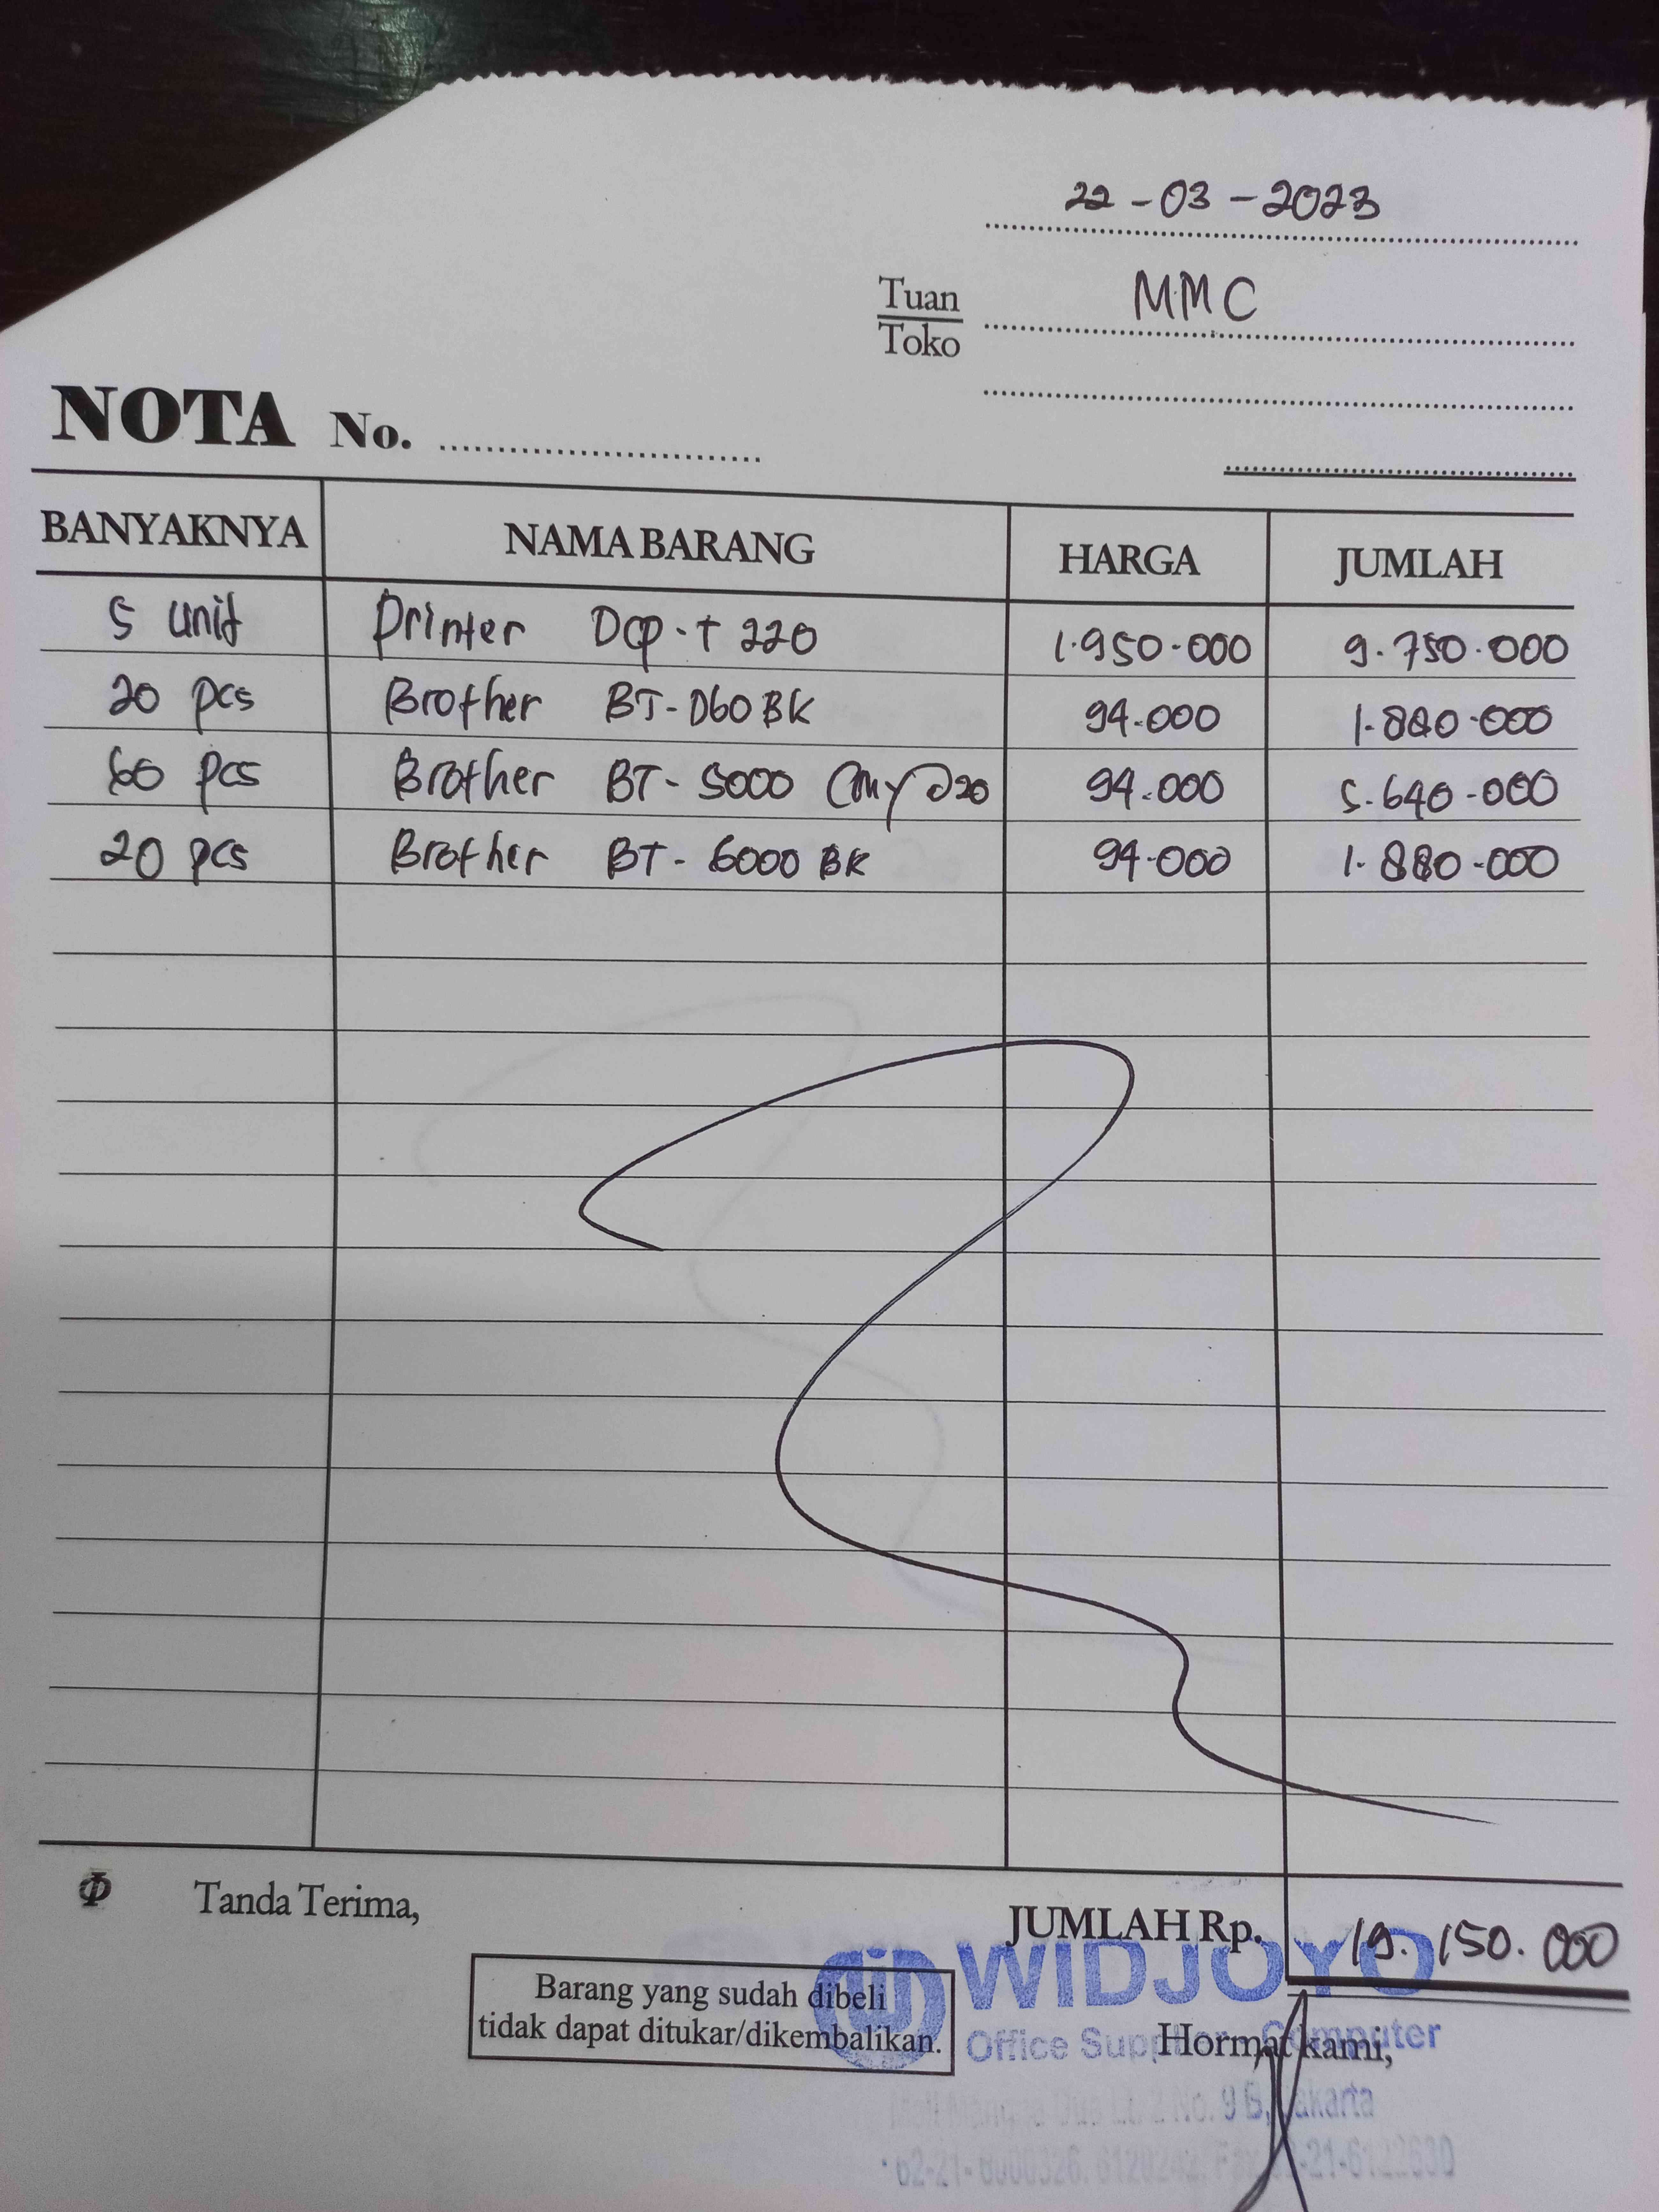 22-03-2023
Tuan
Toko
MMC
NOTA No.
BANYAKNYA NAMA BARANG HARGA JUMLAH
5 unit Printer DCP-T 220 1.950.000 9.750.000
20 pcs Brother BT-D60 BK 94.000 1.880.000
60 pcs Brother BT-5000 CMY @20 94.000 5.640.000
20 pcs Brother BT-6000 BK 94.000 1.880.000
Tanda Terima,
JUMLAH Rp. 19.150.000
Barang yang sudah dibeli
tidak dapat ditukar/dikembalikan.
WIDJOYO
Office Computer
Hormat kami,
Mangga Dua Lt. 2 No. 9 B, Jakarta
62-21- 6120242, Fax 62-21-6122630